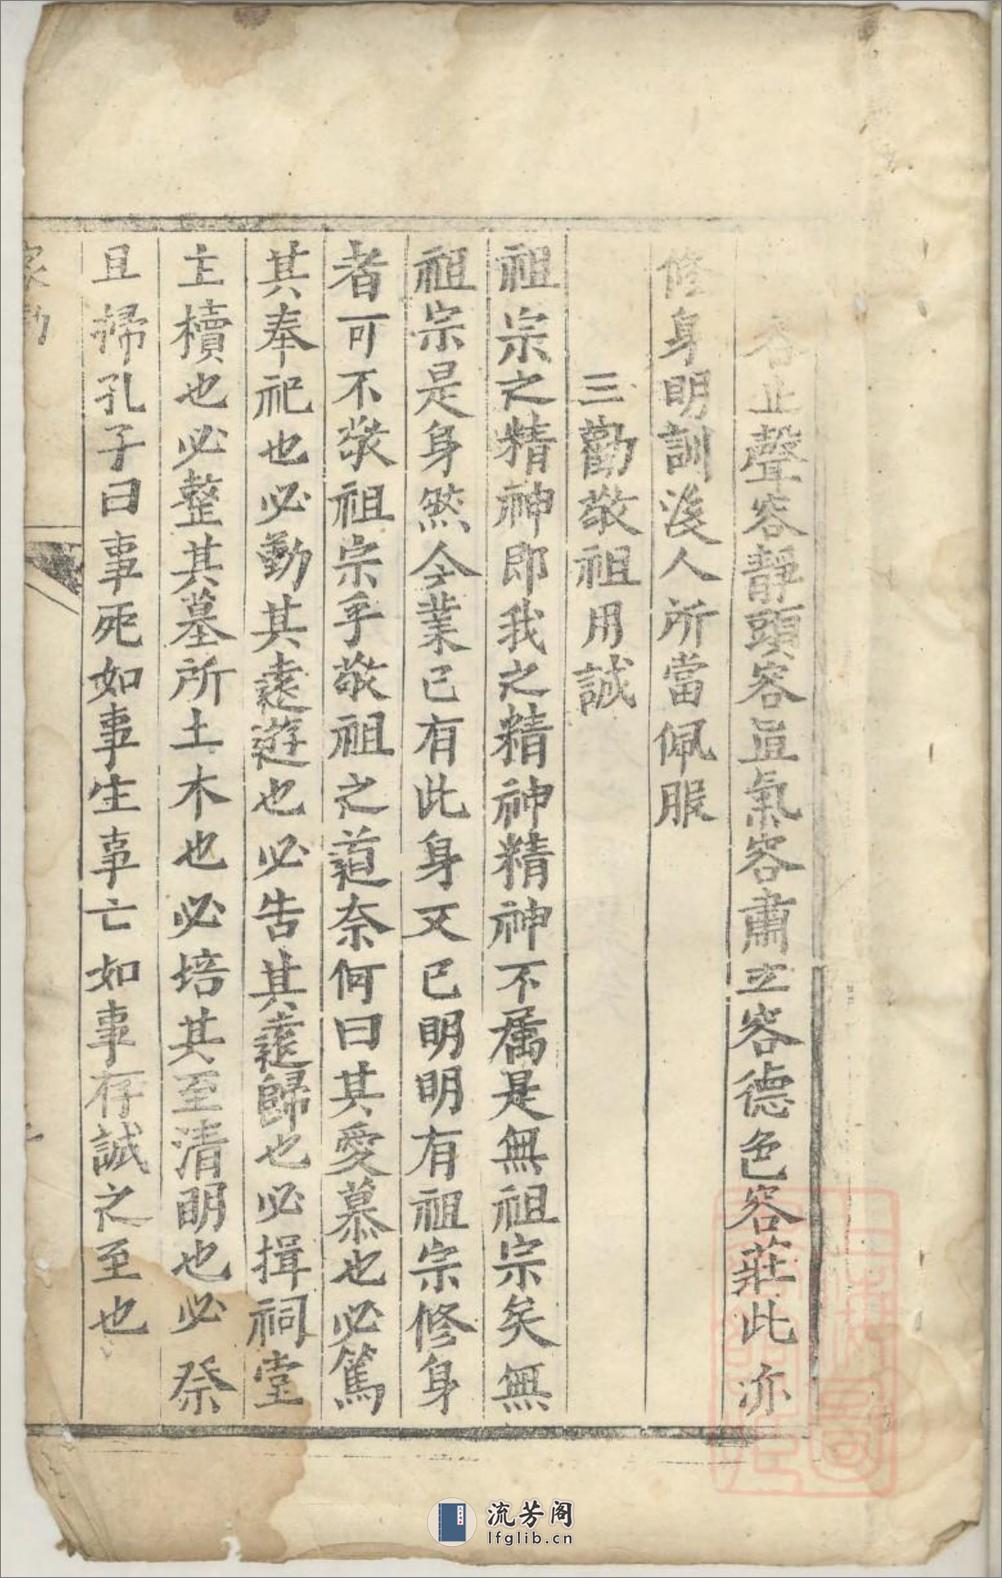 容止聲容靜頭容直氣容肅立容德色容莊此亦
修身明訓後人所當佩服
三勸敬祖用誠
祖宗之精神即我之精神精神不属是無祖宗矣無
祖宗是身然今業已有此身又已明明有祖宗修身
者可不敬祖宗乎敬祖之道奈何曰其愛慕也必篤
其奉祀也必勤其遠遊也必告其遠歸也必揖祠堂
主櫝也必整其墓所土木也必培其至清明也必祭
且掃孔子曰事死如事生事亡如事存誠之至也
家勸
流芳阁
lfglib.cn